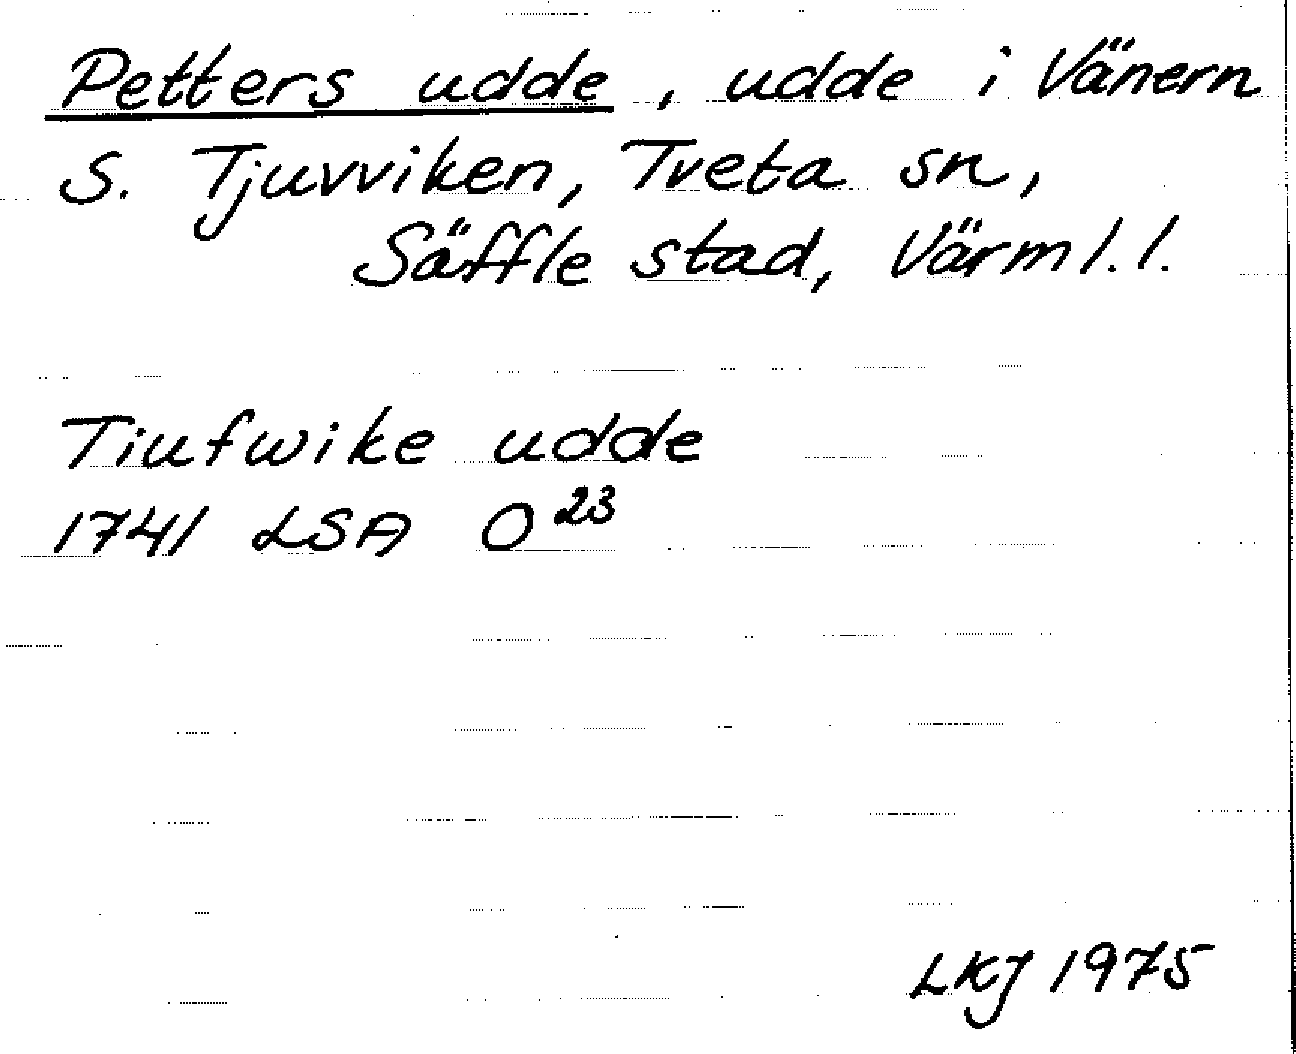 Petters udde, udde i Vänern
S. Tjuvviken, Tveta sn,
Säffle stad, Värml. l.
Tiufwike udde
1741 LSA O 23
LKJ 1975